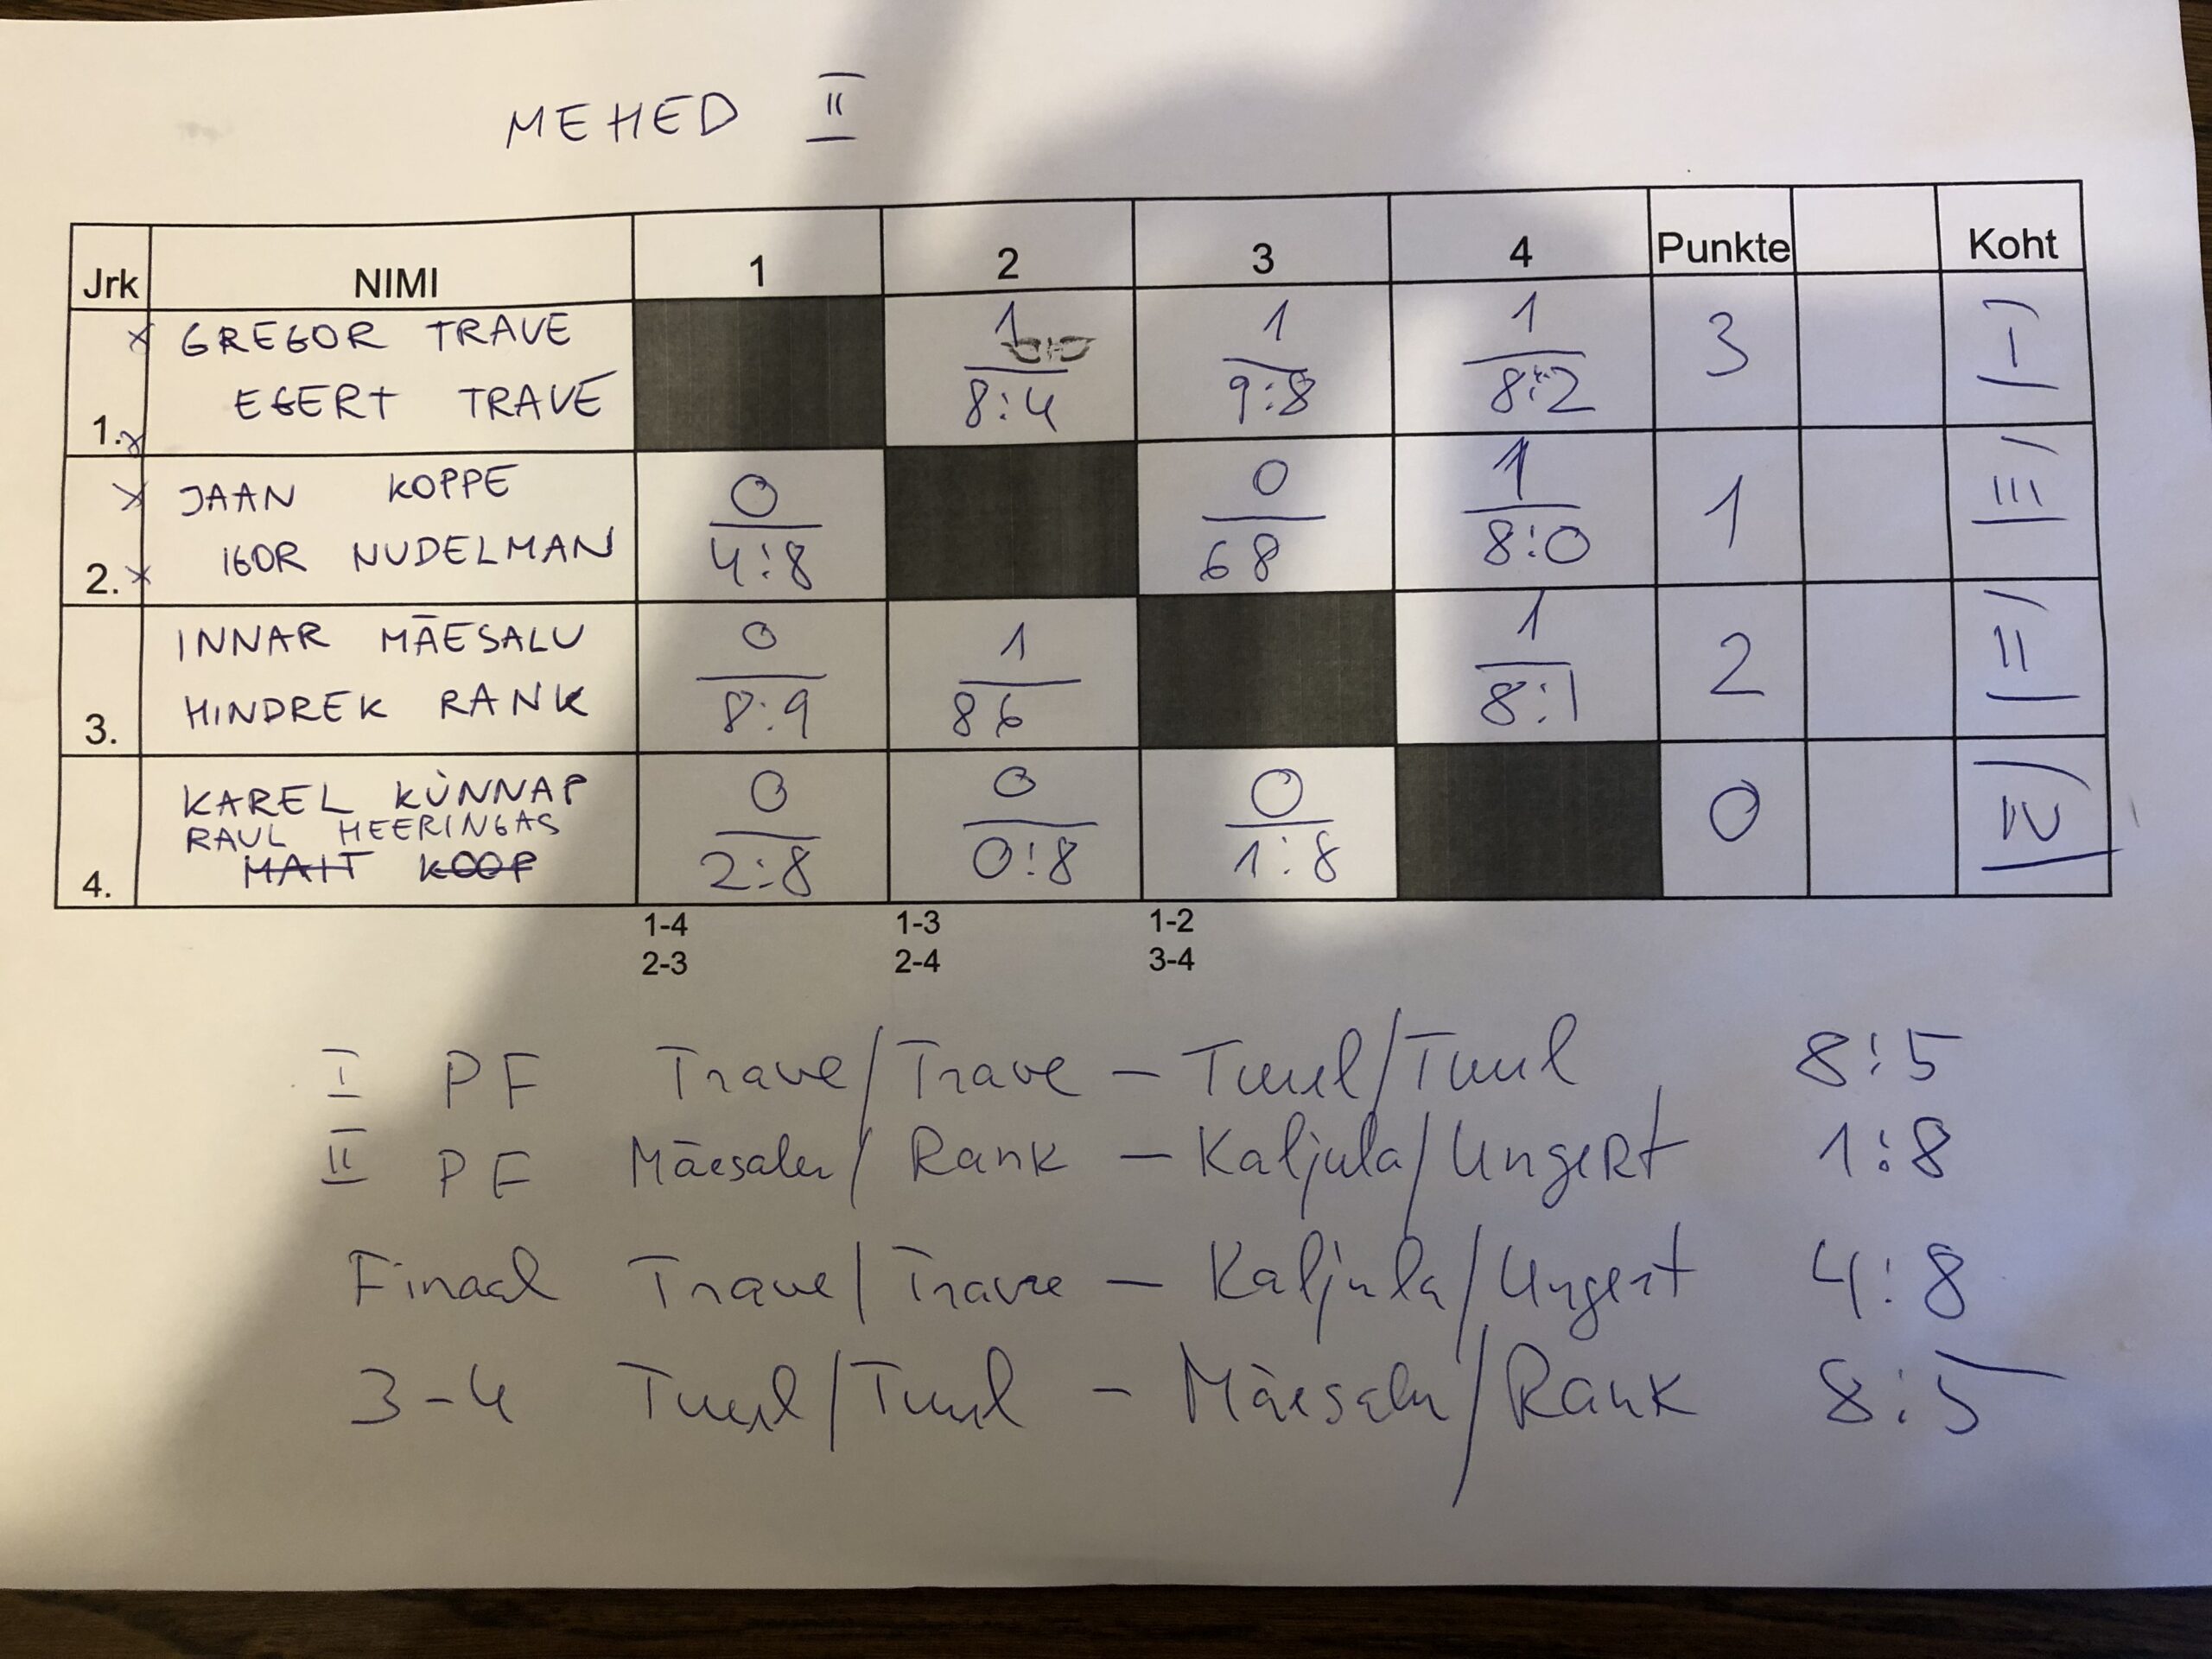 MEHED II
Jrk NIMI 1 2 3 4 Punkte Koht
1. GREGOR TRAVE EGERT TRAVE 1 8:4 1 9:8 1 8:2 3 I
2. JAAN KOPPE IGOR NUDELMAN 0 4:8 0 68 1 8:0 1 III
3. INNAR MÄESALU HINDREK RANK 0 8:9 1 86 1 8:1 2 II
4. KAREL KÜNNAP RAUL HEERINGAS MAIT KOOP 0 2:8 0 0:8 0 1:8 0 IV
1-4 1-3 1-2
2-3 2-4 3-4
I PF Trave/Trave - Tuul/Tuul 8:5
II PF Mäesalu/Rank - Kaljula/Ungert 1:8
Finaal Trave/Trave - Kaljula/Ungert 4:8
3-4 Tuul/Tuul - Mäesalu/Rank 8:5